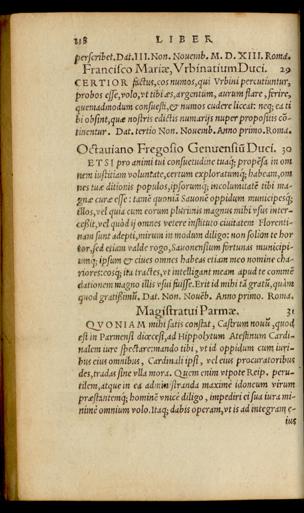 218 LIBER
perscribet. Dat. III. Non. Nouemb. M. D. XIII. Roma.
Francisco Mariæ, Vrbinatium Duci. 29
CERTIOR factus, eos numos, qui Vrbini percutiuntur,
probos esse, volo, vt tibi æs, argentum, aurum flare, ferire,
quemadmodum consuesti, & numos cudere liceat: neq; ea ti
bi obsint, quæ nostris edictis numarijs nuper proposuis cō-
tinentur. Dat. tertio Non. Nouemb. Anno primo. Roma.
Octauiano Fregosio Genuensiū Duci. 30
ETSI pro animi tui consuetudine tuaq; propēsa in om
nem iustitiam voluntate, certum exploratumq; habeam, om
nes tuæ ditionis populos, ipsorumq; incolumitatē tibi ma-
gnæ curæ esse: tamē quoniā Sauonē oppidum municipesq;
illos, vel quia cum eorum plurimis magnus mihi vsus inter-
cessit, vel quòd ij omnes vetere instituto ciuitatem Florenti-
nam sunt adepti, mirum in modum diligo: non solùm te hor
tor, sed etiam valde rogo, Sauonensium fortunas municipi-
umq; ipsum & ciues omnes habeas etiam meo nomine cha-
riores: eosq; ita tractes, vt intelligant meam apud te commē
dationem magno illis vsui fuisse. Erit id mihi tā gratū, quàm
quod gratissimū. Dat. Non. Nouēb. Anno primo. Roma.
Magistratui Parmæ. 31
QVONIAM mihi satis constat, Castrum nouū, quod
est in Parmensi diœcesi, ad Hippolytum Atestinum Cardi-
nalem iure spectare: mando tibi, vt id oppidum cum iuri-
bus eius omnibus, Cardinali ipsi, vel eius procuratoribus
des, tradas sine vlla mora. Quem enim vtpote Reip. peru-
tilem, atque in ea administranda maxime idoneum virum
præstantemq; hominē vnicè diligo, impediri ei sua iura mi-
nimē omnium volo. Itaq; dabis operam, vt is ad integram e-
ius